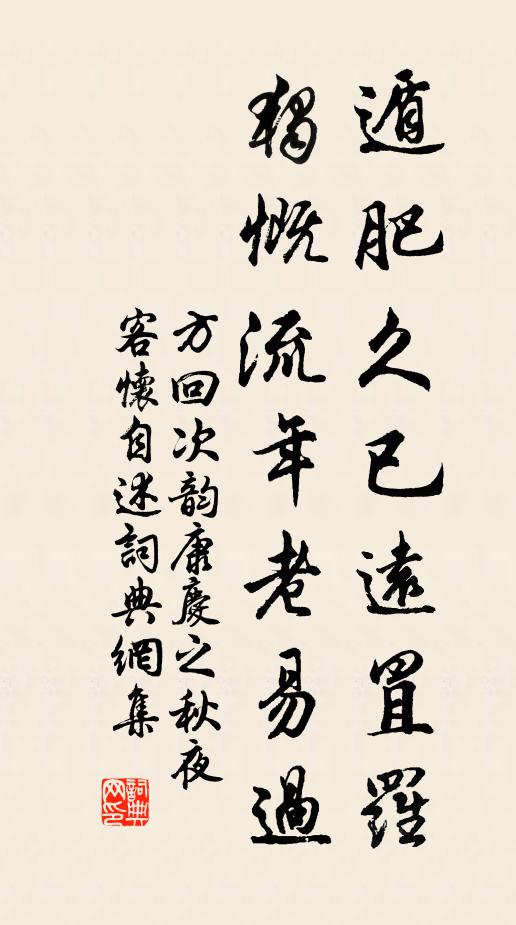 遁肥久已遠罝羅
獨慨流年老易過
方回次韵康慶之秋夜
客懷自述詞典網集
詞典网印